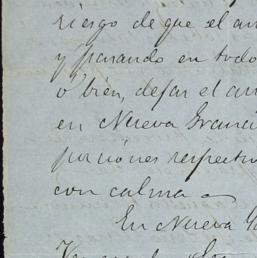 riesgo de que el an
y parando en todo
o bien, dejar el an
en Nueva Granc
porciones respectiv
con calma
En Nueva G